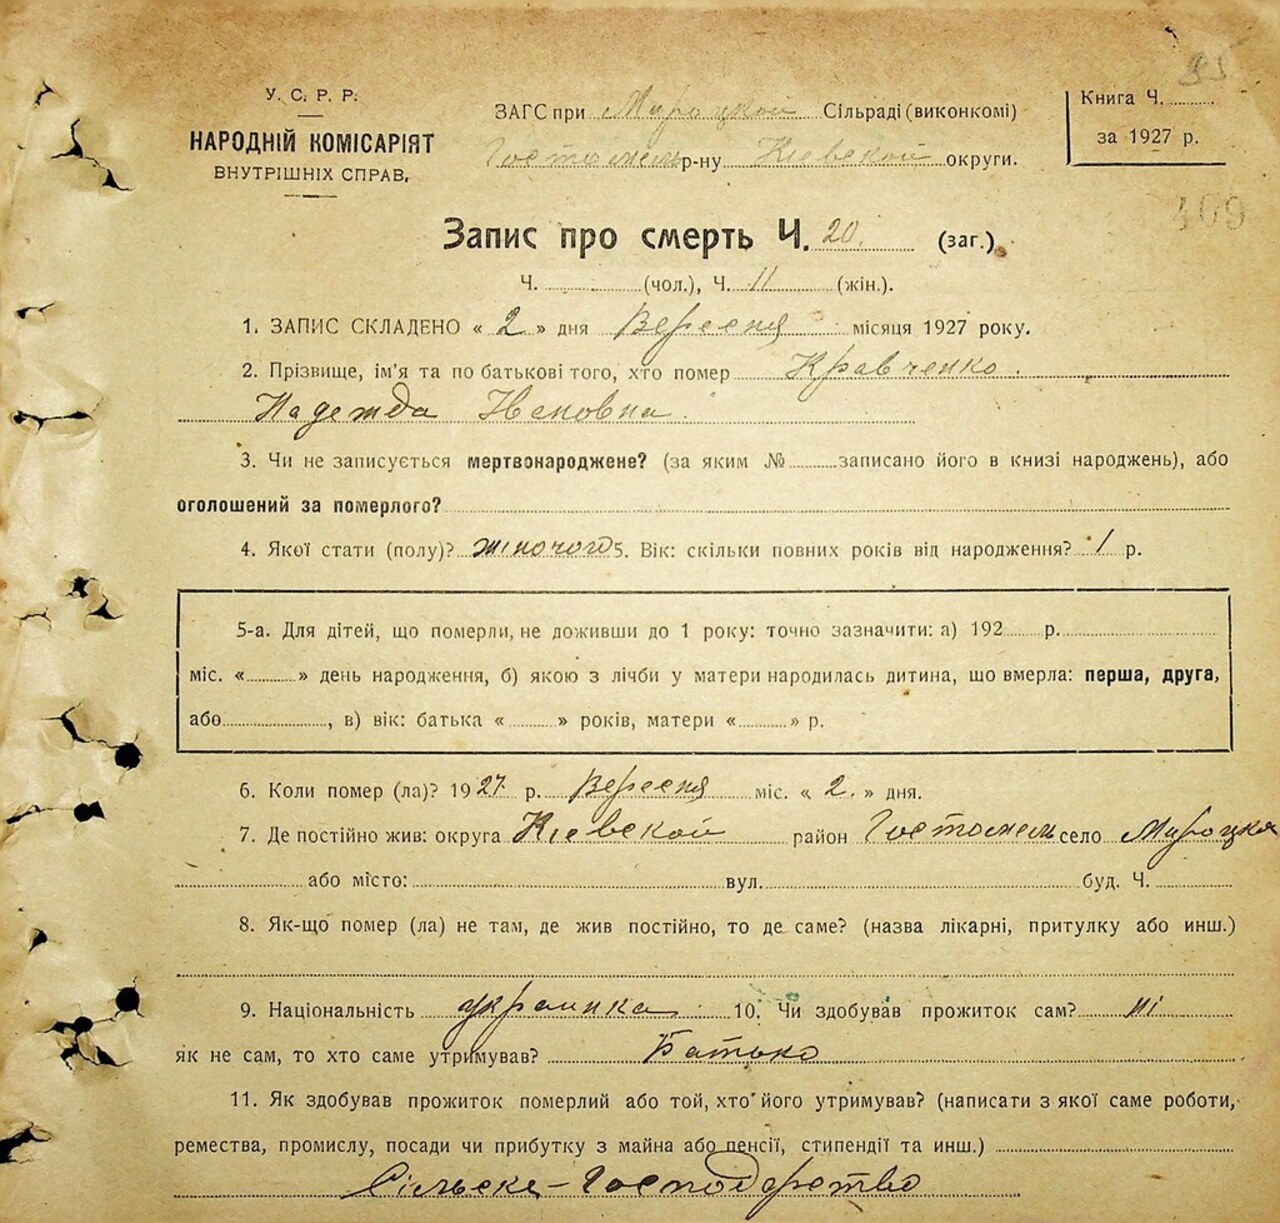 У. С. Р. Р.
НАРОДНІЙ КОМІСАРІЯТ
ВНУТРІШНІХ СПРАВ.
ЗАГС при Мироцкой Сільраді (виконкомі)
Гостомель р-ну Киевской округи.
Книга Ч.
за 1927 р.
409
Запис про смерть Ч. 20. (заг.)
Ч. (чол.), Ч. 11 (жін.).
1. ЗАПИС СКЛАДЕНО « 2 » дня Вересня місяця 1927 року.
2. Прізвище, ім'я та по батькові того, хто помер Кравченко.
Надежда
3. Чи не записується мертвонароджене? (за яким № записано його в книзі народжень), або
оголошений за померлого?
4. Якої стати (полу)? жіночого 5. Вік: скільки повних років від народження? 1 р.
5-а. Для дітей, що померли, не доживши до 1 року: точно зазначити: а) 192 р.
міс. « » день народження, б) якою з лічби у матери народилась дитина, що вмерла: перша, друга,
або , в) вік: батька « » років, матери « » р.
6. Коли помер (ла)? 1927 р. Вересня міс. « 2. » дня.
7. Де постійно жив: округа Киевской район Гостомель село Мироцка
або місто: вул. буд. Ч.
8. Як-що помер (ла) не там, де жив постійно, то де саме? (назва лікарні, притулку або инш.)
9. Національність украинка 10. Чи здобував прожиток сам? ні
як не сам, то хто саме утримував? Батько
11. Як здобував прожиток померлий або той, хто його утримував? (написати з якої саме роботи,
ремества, промислу, посади чи прибутку з майна або пенсії, стипендії та инш.)
Сільске-Господарство